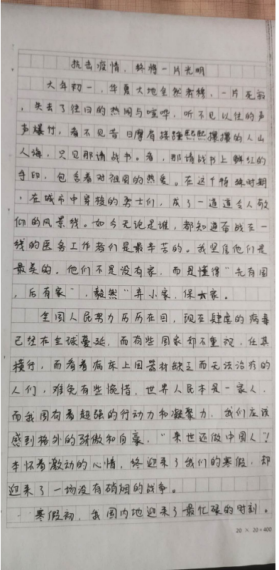 抗击疫情，终将一片光明
大年初一，华夏大地
失去了往日的热闹与喧哗，听不见以往的声
声爆竹，看不见昔日摩肩接踵熙熙攘攘的人山
人海，只见那请战书。看，那请战书上鲜红的
手印，包含着对祖国的热爱。在这个特殊时期，
在城市中穿梭的 成了一道道令人敬
仰的风景线。如今无论是谁，都知道奋战在一
线的医务工作者们是最辛苦的。我觉得他们是
最美的。他们不是没有家，而是懂得“先有国
，后有家”，毅然“弃小家，保大家。
全国人民努力历历在目，现在肆虐的病毒
已经在全球蔓延，而有些国家却不重视，任其
横行，而看着病床上因器材缺乏而无法治疗的
人们，难免有些惋惜，世界人民本是一家人，
而我国有着超强的行动力和凝聚力，我们应该
感到格外的骄傲和自豪，“来世还做中国人”！
李怀着激动的心情，终迎来了我们的寒假，却
迎来了一场没有硝烟的战争。
寒假初，我国内地迎来了最忙碌的时刻。
20 × 20=400